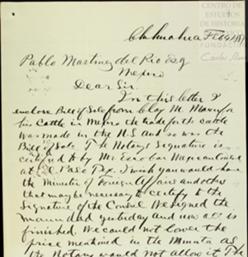 CENTRO DE
ESTUDIOS
DE HISTORIA
Chihuahua Feb
FUNDACIÓN
Carlos
Pablo Martinez del Rio Esq
Mexico
Dear Sir
In this letter I
enclose Bill of Sale from M.
his Cattle in the trade for the cattle
was made in the U.S and so was the
Bill of Sale. The Notarys Signature is
certified to by Mr Escobar Mex Consul
at El Paso Tex. I wish you would have
the Minister of Foreign Affairs and who
that may be necessary to certify to the
Signature of the Consul. We signed the
yesterday and now all is
finished. We could not lower the
price mentioned in the Minuta as
the Notary would not allow it